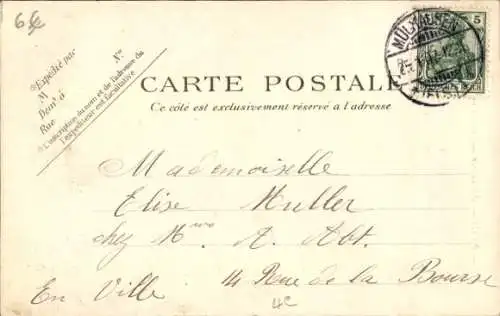 6
Expédié par
M
N°
Dem' à
Rue
L'inscription du nom et de l'adresse de
l'expéditeur est facultative
CARTE POSTALE
Ce côté est exclusivement réservé a l'adresse
MÜLHAUSEN
5
Mademoiselle
Elise Muller
chez Mme A. Abt.
14 Rue de la Bourse
En Ville
4e